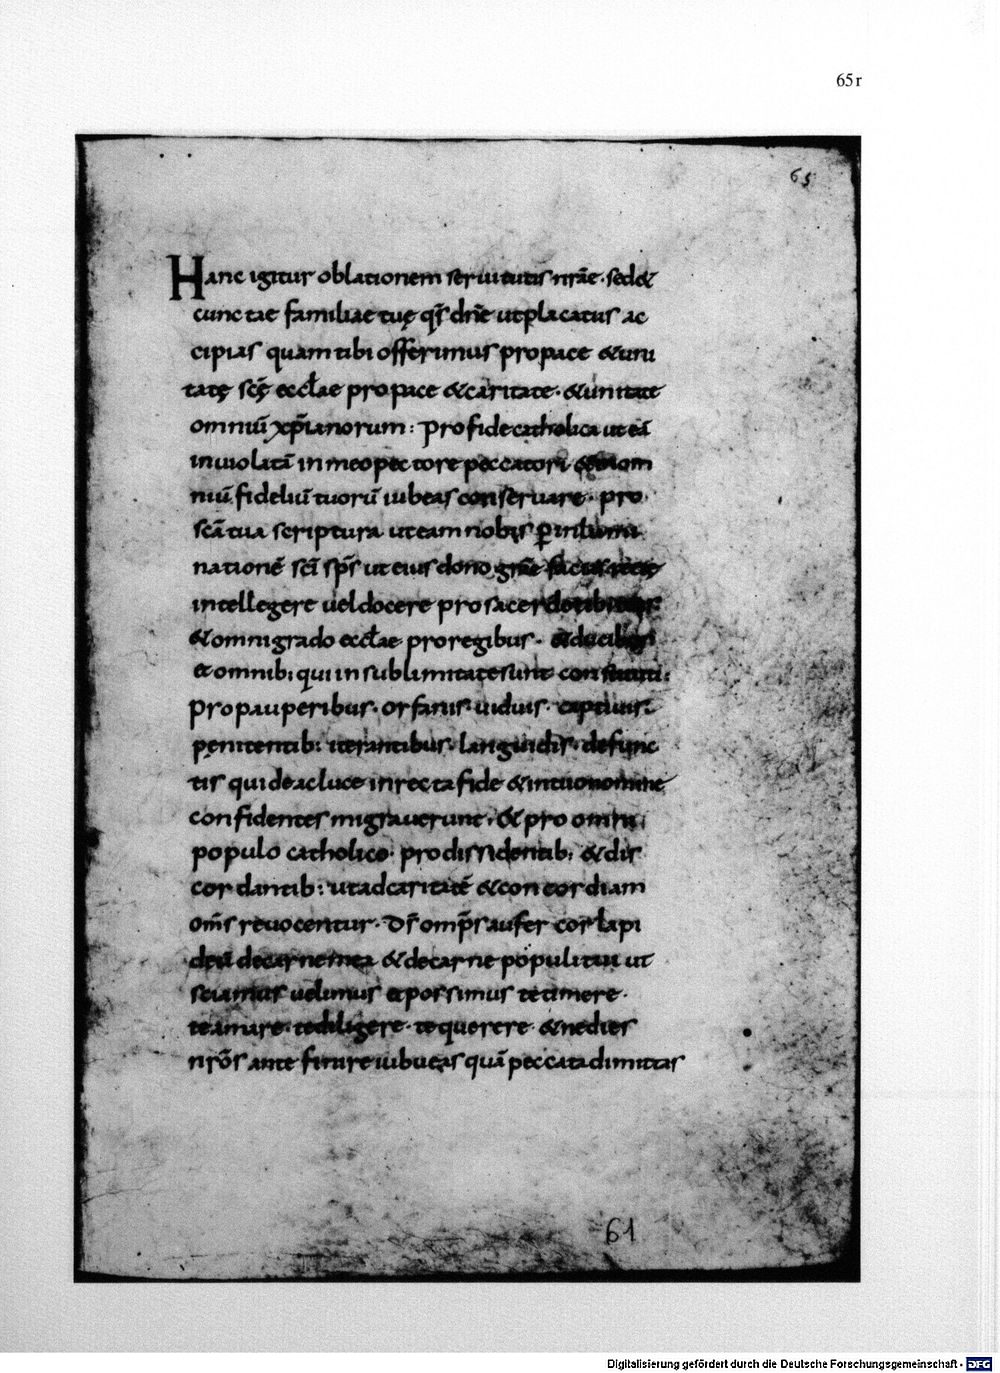 65r
65
Hanc igitur oblationem seruitutis nr̄ae · sed&
cunctae familiae tuę qs̄ dn̄e ut placatus ac
cipias quam tibi offerimus pro pace &uni
tatę scę̄ eccłae pro pace &caritate · &unitate
omniū xp̄ianorum : pro fide catholica ut eā
inuiolatā in meo pectore peccatori om
niū fideliū tuorū iubeas conseruare · pro
scā tua scriptura ut eam nobis ꝑ inlumi
nationē sc̄i sp̄s ut eius dono
intellegere uel docere pro sacerdotibus
&omni grado eccłae pro regibus · &ducibus
et omnib: qui in sublimitate sunt constituti:
pro pauperibus · orfanis · uiduis · captiuis:
pęnitentib: iterantibus · languidis · defunc
tis qui de ac luce in recta fide &in tuo nomine
confidentes migrauerunt · & pro omni
populo catholico · pro dissidentib: &dis
cordantib: ut ad caritatē &concordiam
om̄s reuocentur · Ds̄ omp̄s aufer cor lapi
deū de carne mea &de carne populi tui ut
sciamus uelimus et possimus te timere ·
te amare · te diligere · te querere · &ne dies
nrōs ante finire iubueas quā peccata dimittas
61
Digitalisierung gefördert durch die Deutsche Forschungsgemeinschaft - DFG